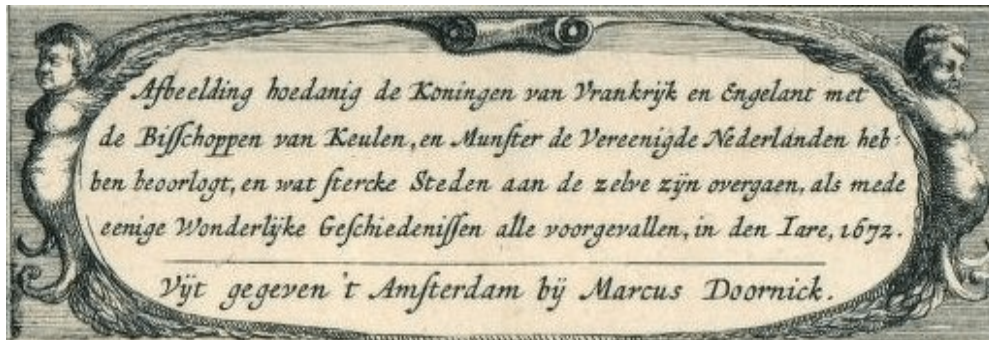 Afbeelding hoedanig de Koningen van Vrankrijk en Engelant met
de Bisschoppen van Keulen, en Munster de Vereenigde Nederlanden heb-
ben beoorlogt, en wat stercke Steden aan de zelve zijn overgaen, als mede
eenige Wonderlijke Geschiedenissen alle voorgevallen, in den Iare, 1672.
Vijt gegeven 't Amsterdam bij Marcus Doornick.